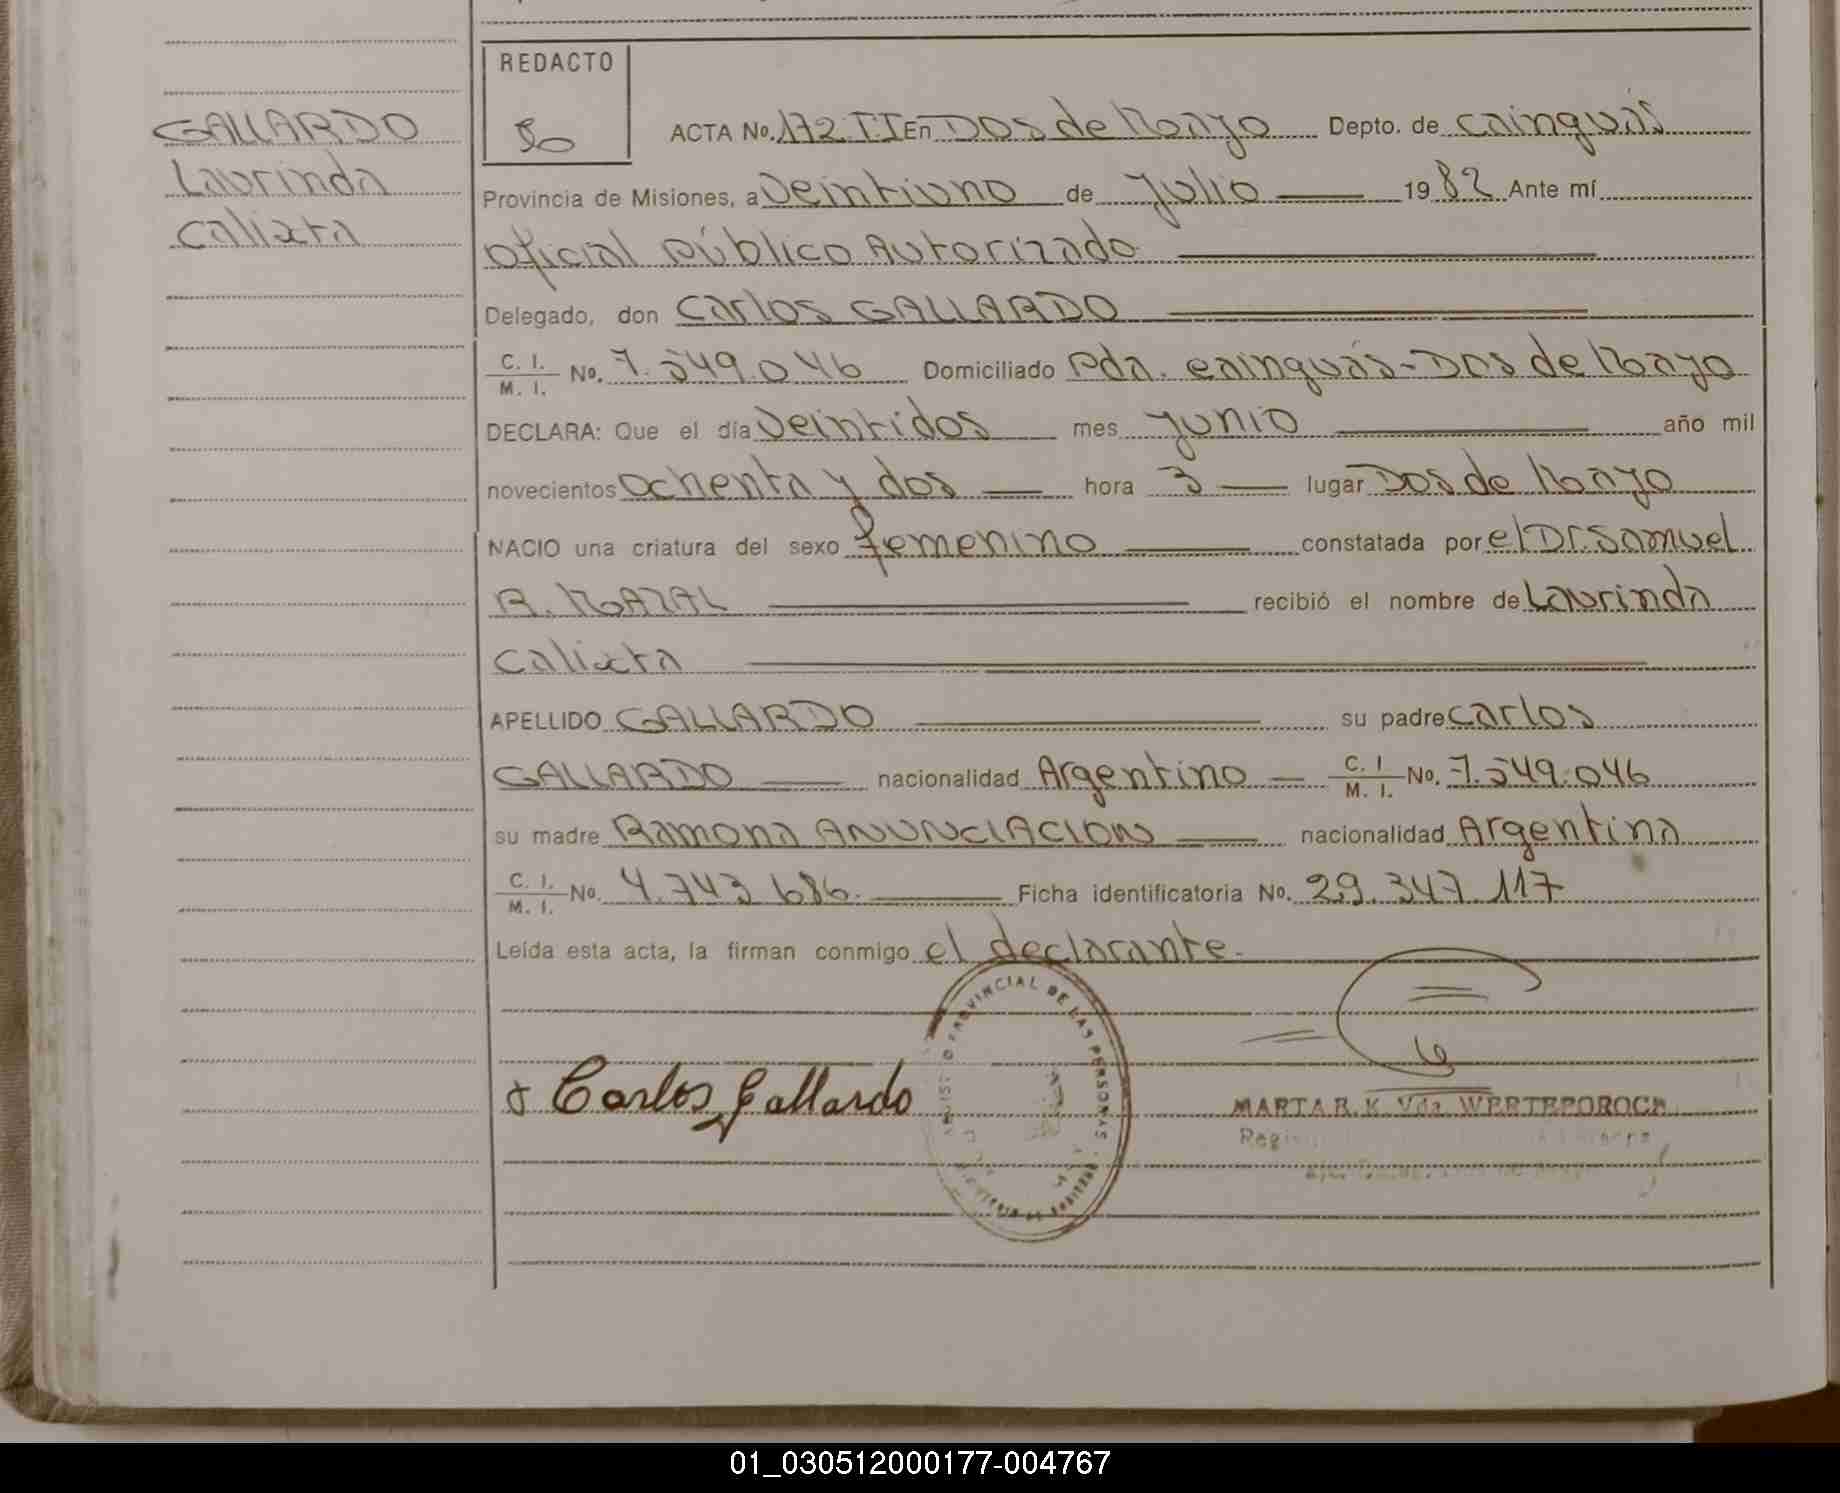 GALLARDO
Laurinda
Calixta
REDACTO
ACTA No. 172 T.I En Dos de Mayo Depto. de Cainguás
Provincia de Misiones, a Veintiuno de Julio 1982 Ante mí
Oficial Público Autorizado
Delegado, don Carlos GALLARDO
C. I. M. I. No. 7.549.046 Domiciliado Pda. Cainguás-Dos de Mayo
DECLARA: Que el día Veintidos mes Junio año mil
novecientos ochenta y dos hora 3 lugar Dos de Mayo
NACIO una criatura del sexo femenino constatada por el Dr. Samuel
R. MAZAL recibió el nombre de Laurinda
Calixta
APELLIDO GALLARDO su padre Carlos
GALLARDO nacionalidad Argentino C. I. M. I. No. 7.549.046
su madre Ramona ANUNCIACION nacionalidad Argentina
C. I. M. I. No. 4.743.686. Ficha identificatoria No. 29.347.117
Leída esta acta, la firman conmigo el declarante.
PROVINCIAL DE LAS PERSONAS
Carlos Gallardo
MARTA R. K. Vda. WERTEPOROCH
01_030512000177-004767